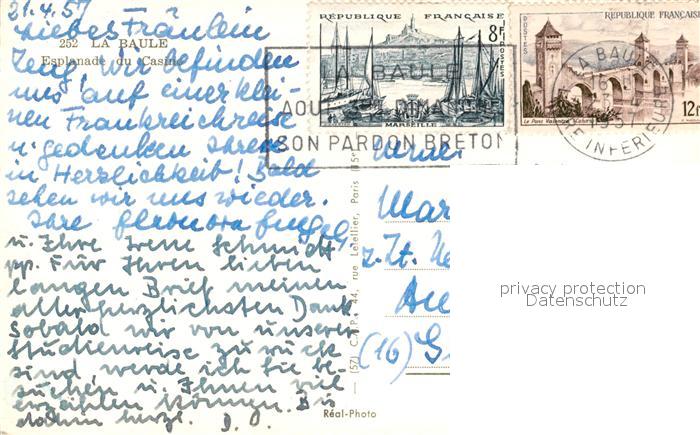 21.4.57
Liebes Fräulein
252 LA BAULE
Zeug, wir befinden
Esplanade du Casino
uns auf einer klei-
nen Frankreichreise
u. gedenken Ihrer
in Herzlichkeit! Bald
sehen wir uns wieder.
Ihre
u. Ihre Irene Schmidt
pp. Für Ihren lieben
langen Brief meinen
allerherzlichsten Dank
Sobald wir von unserer
Studienreise zurück
sind werde ich Sie be-
suchen u. Ihnen viel
erzählen können. Bis
dahin herzl.
RÉPUBLIQUE FRANÇAISE
8F
POSTES
MARSEILLE
RÉPUBLIQUE FRANÇAISE
POSTES
12F
Le Pont Valentré Cahors
LA BAULE
AOUT DIMANCHE
SON PARDON BRETON
LA BAULE
1957
LOIRE INFERIEURE
Mar
z.Zt.
(16) G
(57) C.A.P. 44, rue Letellier, Paris (15e
Réal-Photo
privacy protection
Datenschutz